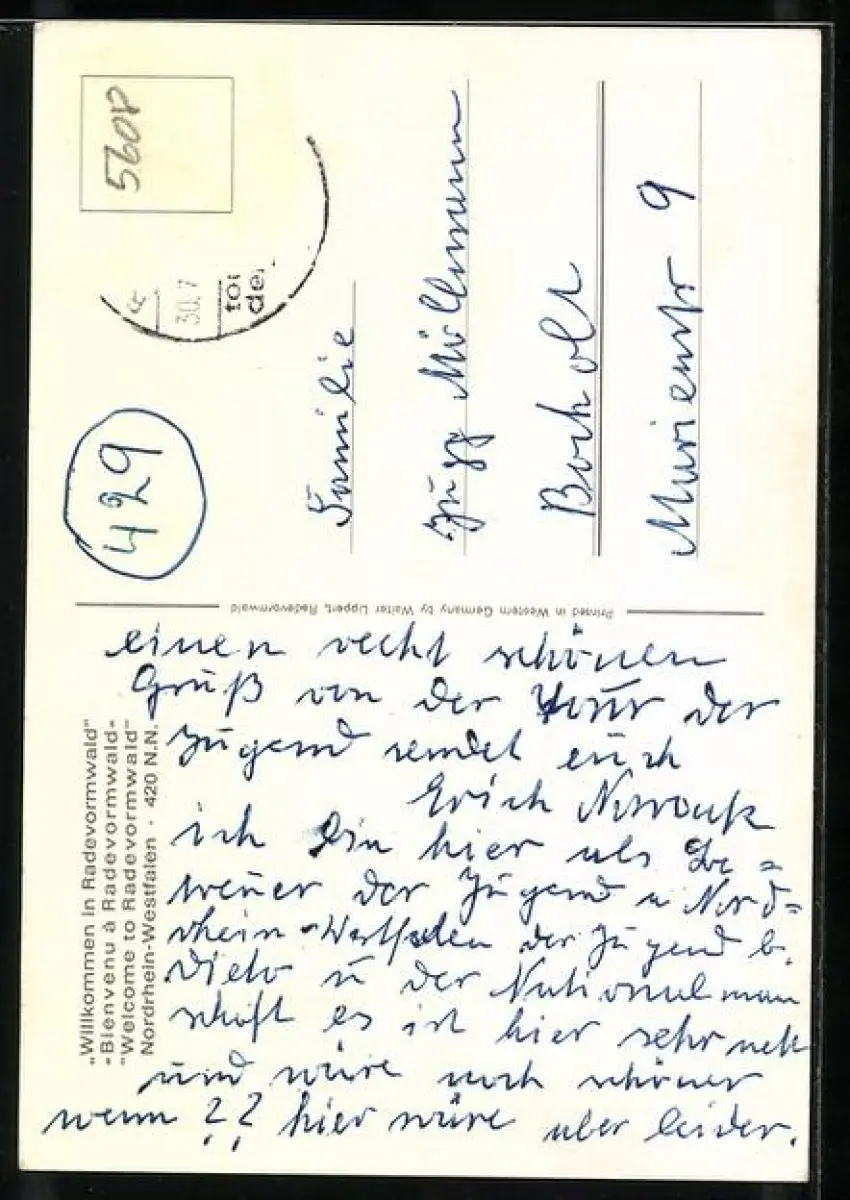 5608
30.7
429
Familie
Jupp Möllmann
Bocholt
Marienstr 9
Printed in Western Germany by Walter Lippert, Radevormwald
„Willkommen in Radevormwald"
-Bienvenu à Radevormwald-
"Welcome to Radevormwald"
Nordrhein-Westfalen · 420 N.N.
einen recht schönen
Gruß von der Tour der
Jugend sendet euch
Erich Nowak
ich bin hier als Be=
treuer der Jugend u Nord=
rhein-Westfalen der Jugend b.
u der Nationalman
schaft es ist hier sehr nett
und wäre noch schöner
wenn ?? hier wäre aber leider.